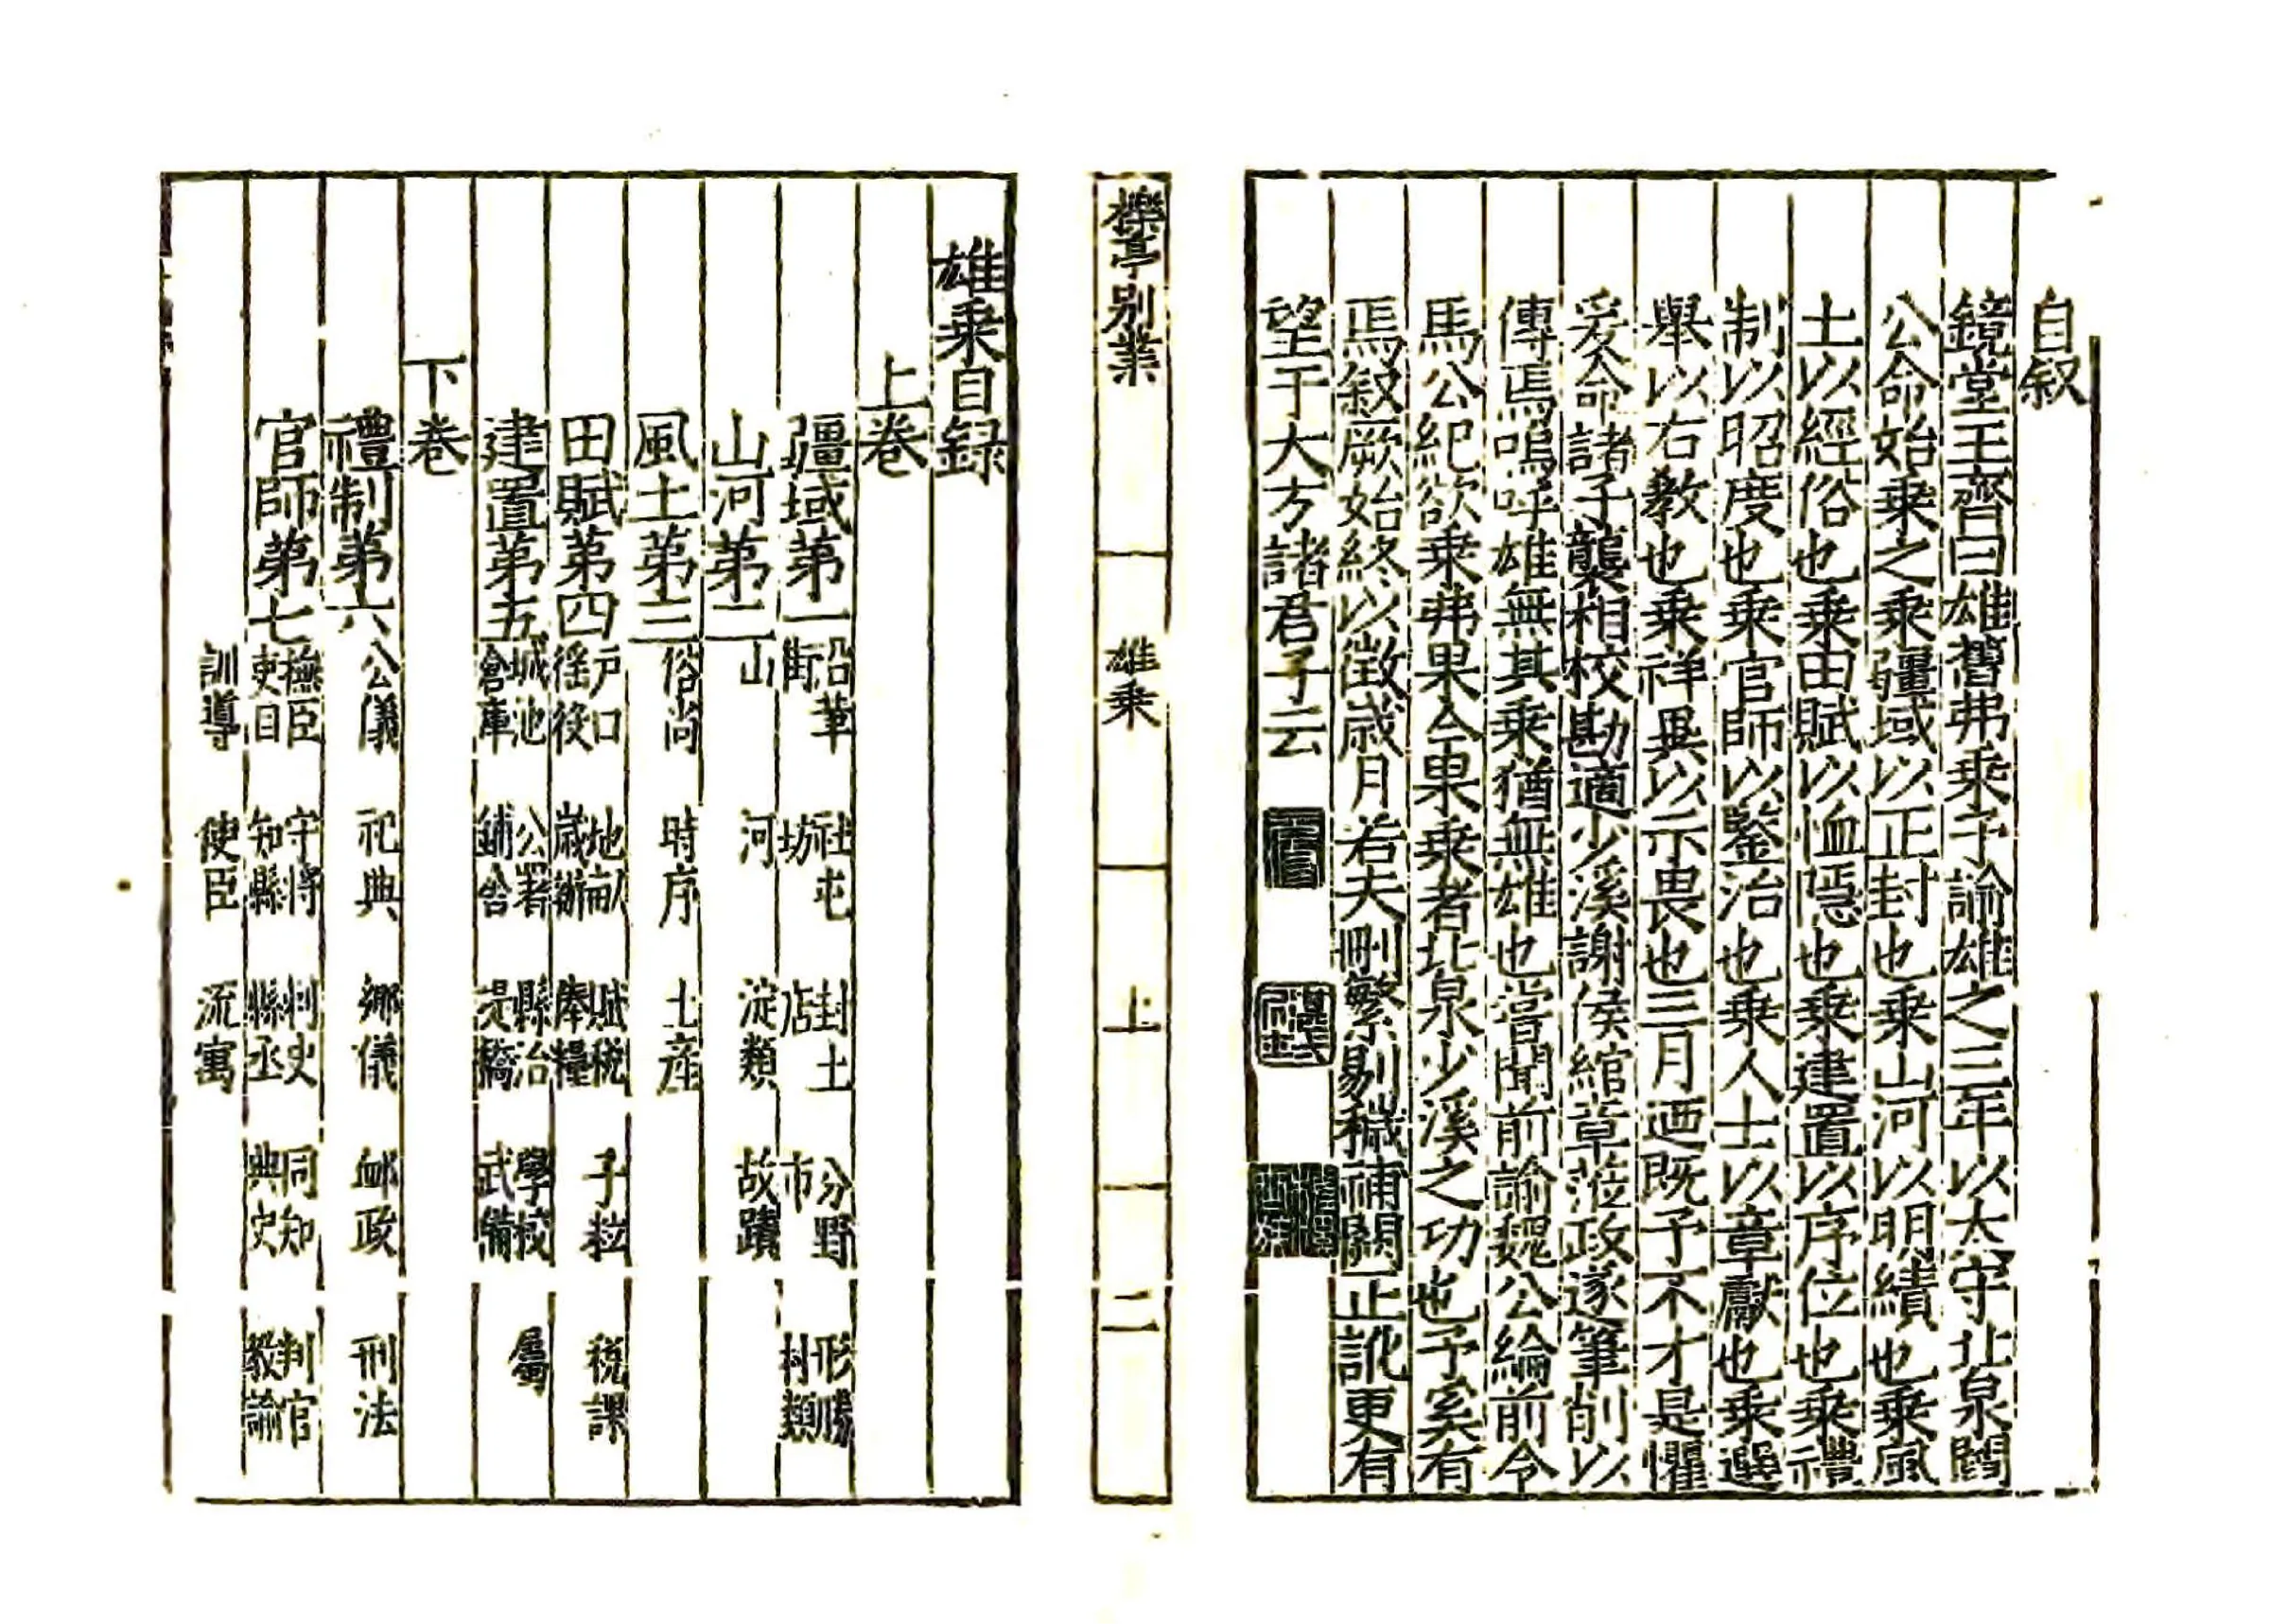 自叙
鏡堂王齊曰雄舊弗乘予諭雄之三年以太守北泉閻
公命始乘之乘疆域以正封也乘山河以明績也乘風
土以經俗也乘田賦以恤隱也乘建置以序位也乘禮
制以昭度也乘官師以鑒治也乘人士以章獻也乘選
舉以右教也乘祥異以示畏也三月迺既予不才是懼
爰命諸子襲相校勘適少溪謝侯綰章蒞政遂筆削以
傳焉嗚呼雄無其乘猶無雄也嘗聞前諭魏公綸前令
馬公紀欲乘弗果今果乘者北泉少溪之功也予奚有
焉叙厥始終以徵歲月若夫刪繁剔穢補闕正訛更有
望于大方諸君子云
櫟亭別業 雄乘 上 二
雄乘目錄
上卷
疆域第一
沿革 社屯 封土 分野 形勝
街 坊 店 市 村類
山河第二 山 河 淀類 故蹟
風土第三 俗尚 時序 土產
田賦第四
戶口 地畝 賦稅 子粒 稅課
徭役 歲辦 俸糧
建置第五
城池 公署 縣治 學校 屬
倉庫 鋪舍 堤橋 武備
下卷
禮制第六 公儀 祀典 鄉儀 卹政 刑法
官師第七
撫臣 守將 刺史 同知 判官
吏目 知縣 縣丞 典史 教諭
訓導 使臣 流寓